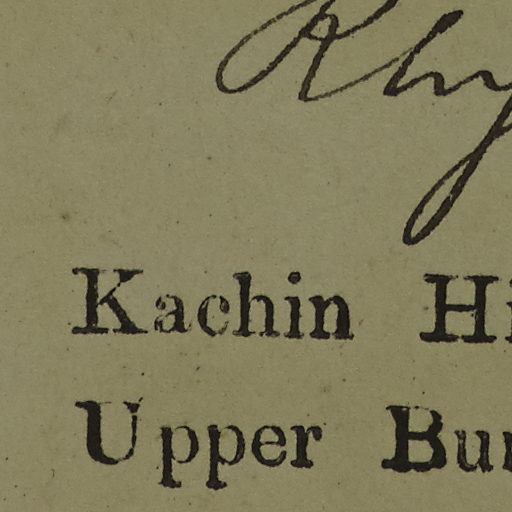 Rhy
Kachin Hi
Upper Bur